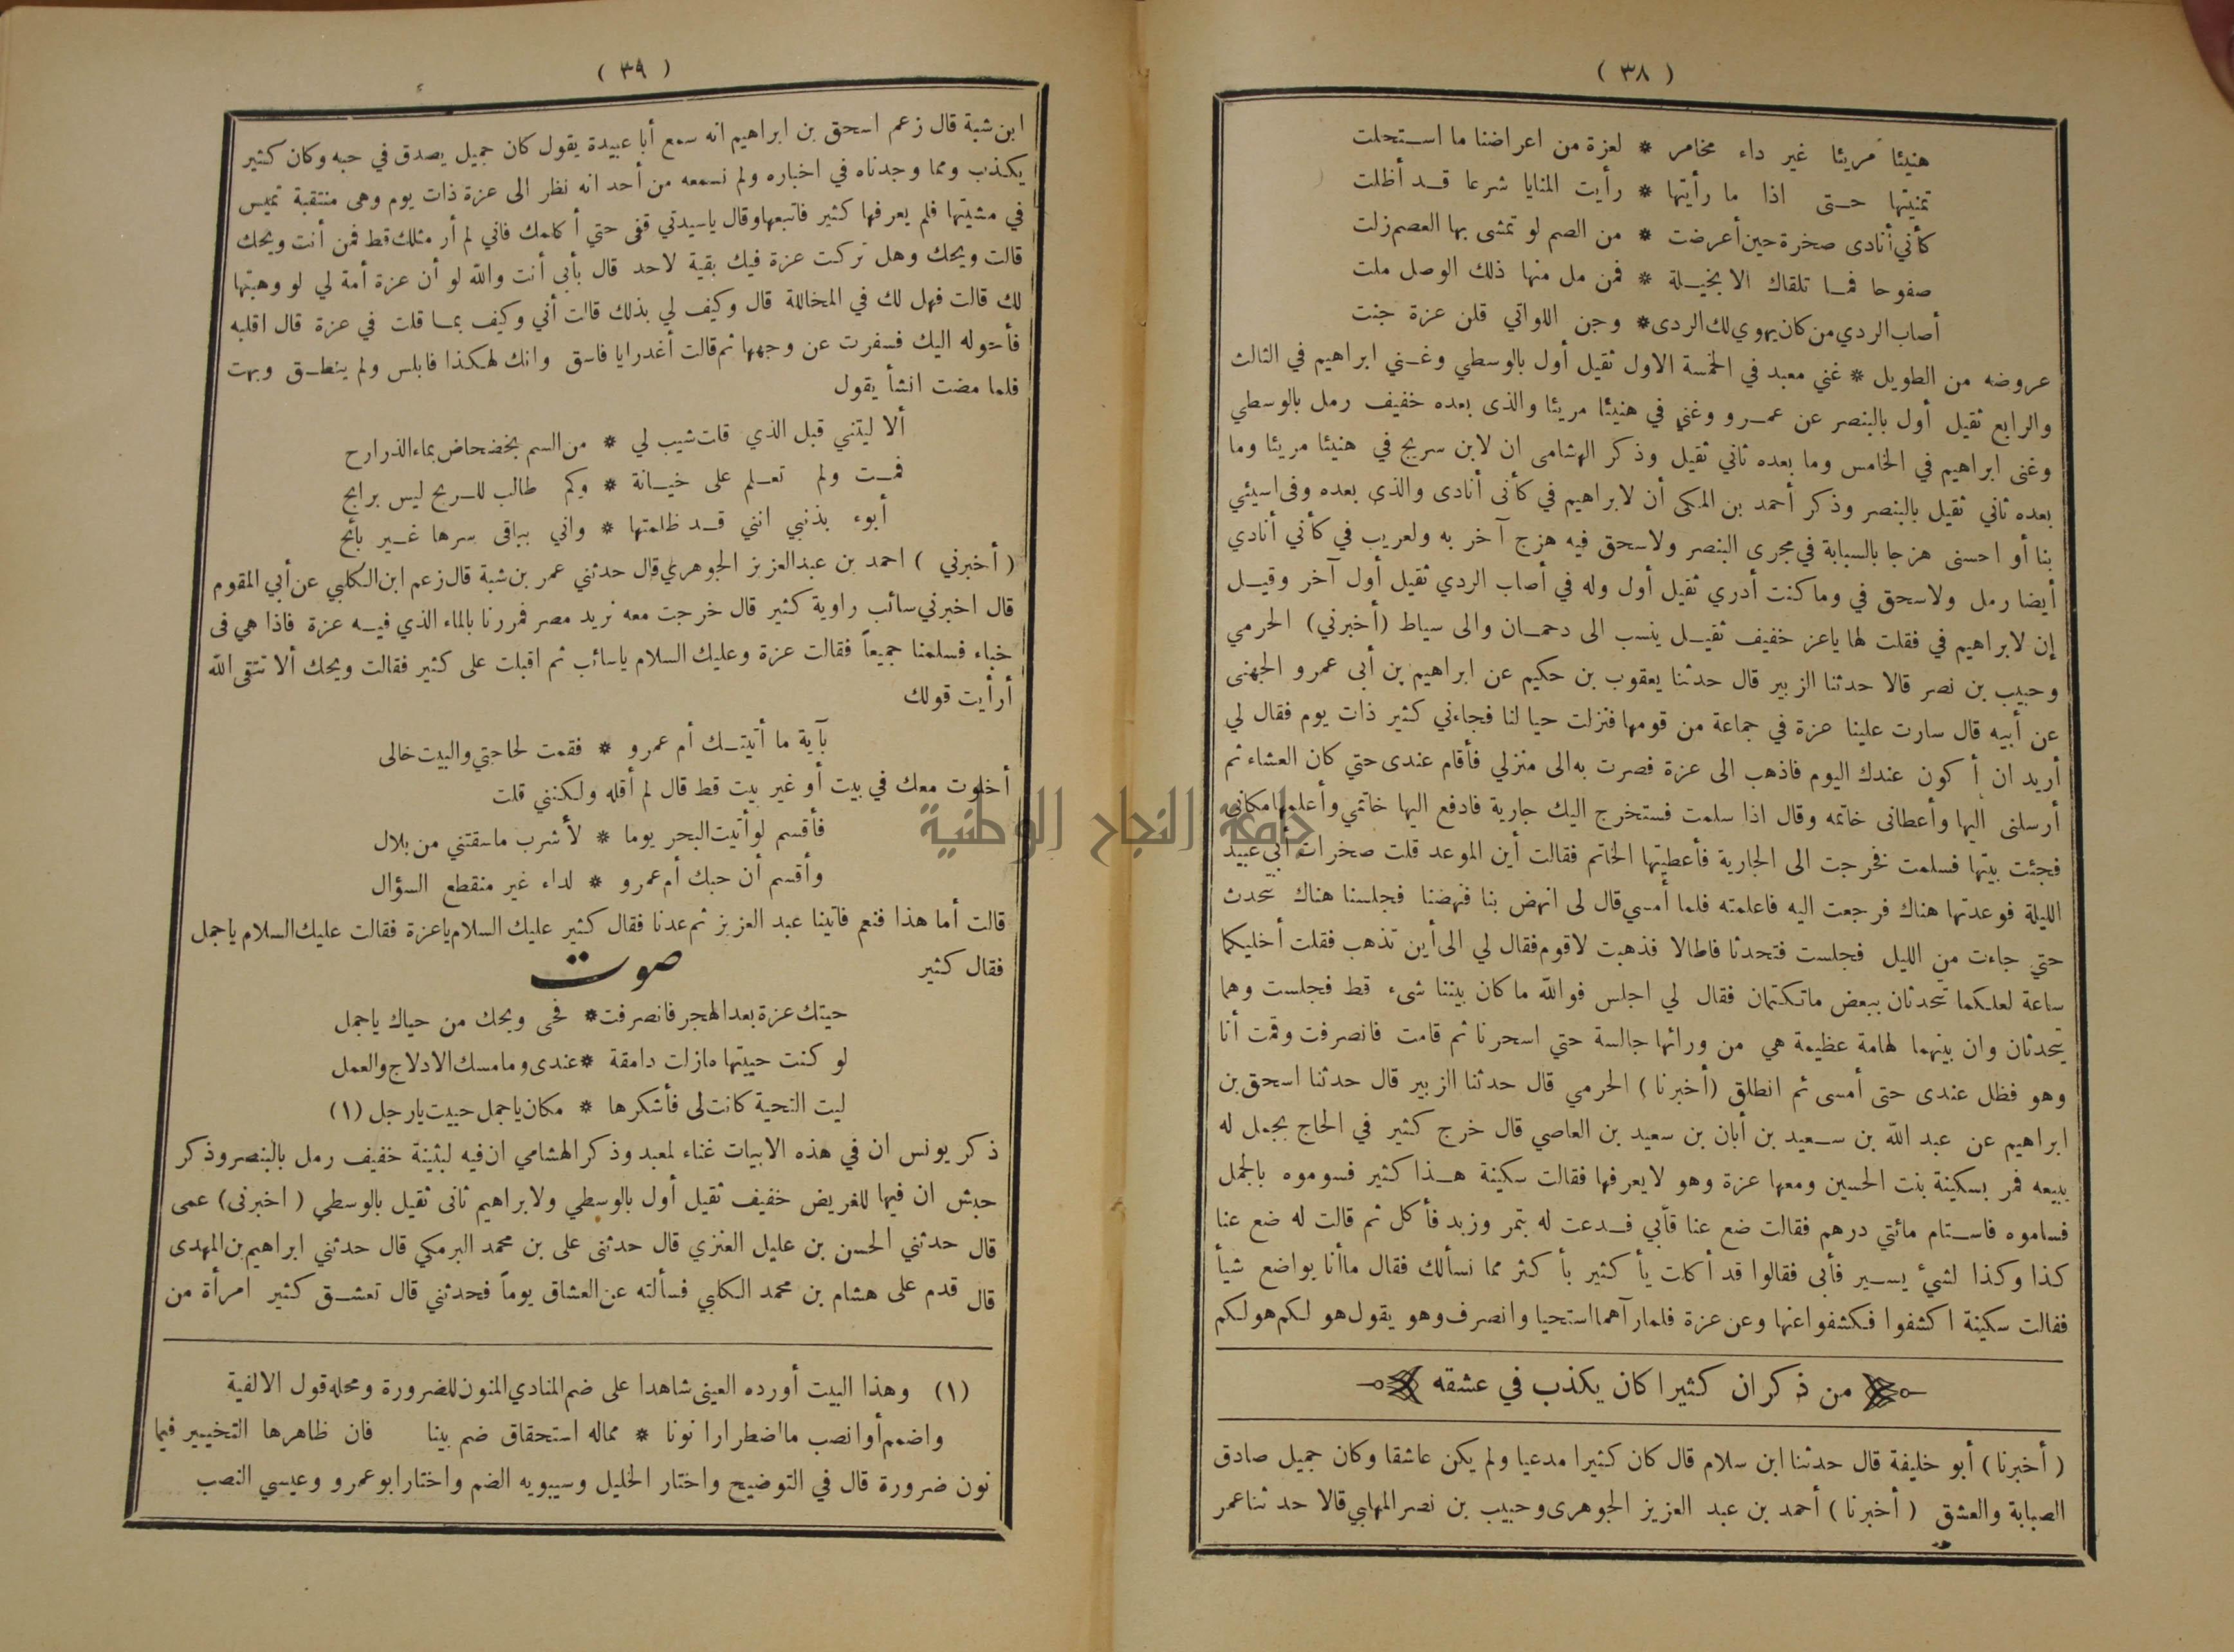 ( ٣٨ )
هنيئا مريئا غير داء مخامر * لعزة من اعراضنا ما استحلت
تمنيتها حتى اذا ما رأيتها * رأيت المنايا شرعا قد أظلت
كأني أنادى صخرة حين أعرضت * من الصم لو تمشى بها العصم زلت
صفوحا فما تلقاك الا بخيلة * فمن مل منها ذلك الوصل ملت
أصاب الردي من كان يهوي لك الردى * وجن اللواتي قلن عزة جنت
عروضه من الطويل * غني معبد في الخمسة الاول ثقيل أول بالوسطي وغني ابراهيم في الثالث
والرابع ثقيل أول بالبنصر عن عمرو وغني في هنيئا مريئا والذى بعده خفيف رمل بالوسطي
وغنى ابراهيم في الخامس وما بعده ثاني ثقيل وذكر الهشامى ان لابن سريج في هنيئا مريئا وما
بعده ثاني ثقيل بالبنصر وذكر أحمد بن المكى أن لابراهيم في كأنى أنادى والذى بعده وفى اسيئي
بنا أو احسنى هزجا بالسبابة في مجرى البنصر ولاسحق فيه هزج آخر به ولعريب في كأني أنادي
أيضا رمل ولاسحق في وما كنت أدري ثقيل أول وله في أصاب الردي ثقيل أول آخر وقيل
إن لابراهيم في فقلت لها ياعز خفيف ثقيل ينسب الى دحمان والى سياط (أخبرني) الحرمي
وحبيب بن نصر قالا حدثنا الزبير قال حدثنا يعقوب بن حكيم عن ابراهيم بن أبى عمرو الجهنى
عن أبيه قال سارت علينا عزة في جماعة من قومها فنزلت حيالنا فجاءني كثير ذات يوم فقال لي
أريد ان أكون عندك اليوم فاذهب الى عزة فصرت به الى منزلي فأقام عندى حتي كان العشاء ثم
أرسلنى اليها وأعطانى خاتمه وقال اذا سلمت فستخرج اليك جارية فادفع اليها خاتمي وأعلمها مكاني
فجئت بيتها فسلمت فخرجت الى الجارية فأعطيتها الخاتم فقالت أين الموعد قلت صخرات أبي عبيد
الليلة فوعدتها هناك فرجعت اليه فاعلمته فلما أمسي قال لى انهض بنا فنهضنا فجلسنا هناك نتحدث
حتي جاءت من الليل فجلست فتحدثا فاطالا فذهبت لاقوم فقال لي الى أين تذهب فقلت أخليكما
ساعة لعلكما تتحدثان ببعض ما تكتمان فقال لي اجلس فوالله ما كان بيننا شىء قط فجلست وهما
يتحدثان وان بينهما لهامة عظيمة هي من ورائها جالسة حتي اسحرنا ثم قامت فانصرفت وقمت أنا
وهو فظل عندى حتى أمسى ثم انطلق (أخبرنا) الحرمي قال حدثنا الزبير قال حدثنا اسحق بن
ابراهيم عن عبد الله بن سعيد بن أبان بن سعيد بن العاصي قال خرج كثير في الحاج بجمل له
يبيعه فمر بسكينة بنت الحسين ومعها عزة وهو لايعرفها فقالت سكينة هذا كثير فسوموه بالجمل
فساموه فاستام مائتي درهم فقالت ضع عنا فأبي فدعت له بتمر وزبد فأكل ثم قالت له ضع عنا
كذا وكذا لشئ يسير فأبى فقالوا قد أكلت يأ كثير بأ كثر مما نسألك فقال ماأنا بواضع شيأ
فقالت سكينة اكشفوا فكشفوا عنها وعن عزة فلما رآهما استحيا وانصرف وهو يقول هو لكم هو لكم
من ذكر ان كثيرا كان يكذب في عشقه
(أخبرنا) أبو خليفة قال حدثنا ابن سلام قال كان كثيرا مدعيا ولم يكن عاشقا وكان جميل صادق
الصبابة والعشق (أخبرنا) أحمد بن عبد العزيز الجوهرى وحبيب بن نصر المهلبي قالا حدثنا عمر
( ٣٩ )
ابن شبة قال زعم اسحق بن ابراهيم انه سمع أبا عبيدة يقول كان جميل يصدق في حبه وكان كثير
يكذب ومما وجدناه في اخباره ولم نسمعه من أحد انه نظر الى عزة ذات يوم وهى منتقبة تميس
في مشيتها فلم يعرفها كثير فاتبعها وقال ياسيدتي قفى حتي أكلمك فاني لم أر مثلك قط فمن أنت ويحك
قالت ويحك وهل تركت عزة فيك بقية لاحد قال بأبى أنت والله لو أن عزة أمة لي لو وهبتها
لك قالت فهل لك في المخاللة قال وكيف لي بذلك قالت أني وكيف بما قلت في عزة قال اقلبه
فأحوله اليك فسفرت عن وجهها ثم قالت أغدرا يا فاسق وانك لهكذا فابلس ولم ينطق وبهت
فلما مضت انشأ يقول
ألا ليتني قبل الذي قلت شيب لي * من السم بخضخاض بماء الذرارح
فمت ولم تعلم على خيانة * وكم طالب للربح ليس برابح
أبوء بذنبي انني قد ظلمتها * واني بباقى سرها غير بائح
(أخبرني) احمد بن عبد العزيز الجوهري قال حدثني عمر بن شبة قال زعم ابن الكلبي عن أبي المقوم
قال اخبرني سائب راوية كثير قال خرجت معه نريد مصر فمررنا بالماء الذي فيه عزة فاذا هي فى
خباء فسلمنا جميعاً فقالت عزة وعليك السلام ياسائب ثم اقبلت على كثير فقالت ويحك ألا تتقى الله
أرأيت قولك
بآية ما أتيتك أم عمرو * فقمت لحاجتي والبيت خالى
أخلوت معك في بيت أو غير بيت قط قال لم أقله ولكنني قلت
فأقسم لو أتيت البحر يوما * لأشرب ما سقتني من بلال
وأقسم أن حبك أم عمرو * لداء غير منقطع السؤال
قالت أما هذا فنعم فاتينا عبد العزيز ثم عدنا فقال كثير عليك السلام ياعزة فقالت عليك السلام ياجمل
فقال كثير
صوت
حيتك عزة بعد الهجر فانصرفت * فحى ويحك من حياك ياجمل
لو كنت حييتها مازلت دامقة * عندى وما مسك الادلاج والعمل
ليت التحية كانت لى فأشكرها * مكان ياجمل حييت يارجل (١)
ذكر يونس ان في هذه الابيات غناء لمعبد وذكر الهشامي ان فيه لبثينة خفيف رمل بالبنصر وذكر
حبش ان فيها للغريض خفيف ثقيل أول بالوسطي ولابراهيم ثانى ثقيل بالوسطي (اخبرنى) عمى
قال حدثني الحسن بن عليل العنزي قال حدثنى على بن محمد البرمكي قال حدثني ابراهيم بن المهدى
قال قدم على هشام بن محمد الكلبي فسألته عن العشاق يوماً فحدثني قال تعشق كثير امرأة من
(١) وهذا البيت أورده العينى شاهدا على ضم المنادي المنون للضرورة ومحله قول الالفية
واضمم أو انصب ما اضطرارا نونا * مما له استحقاق ضم بينا فان ظاهرها التخيير فيما
نون ضرورة قال في التوضيح واختار الخليل وسيبويه الضم واختار ابو عمرو وعيسي النصب
جامعة النجاح الوطنية